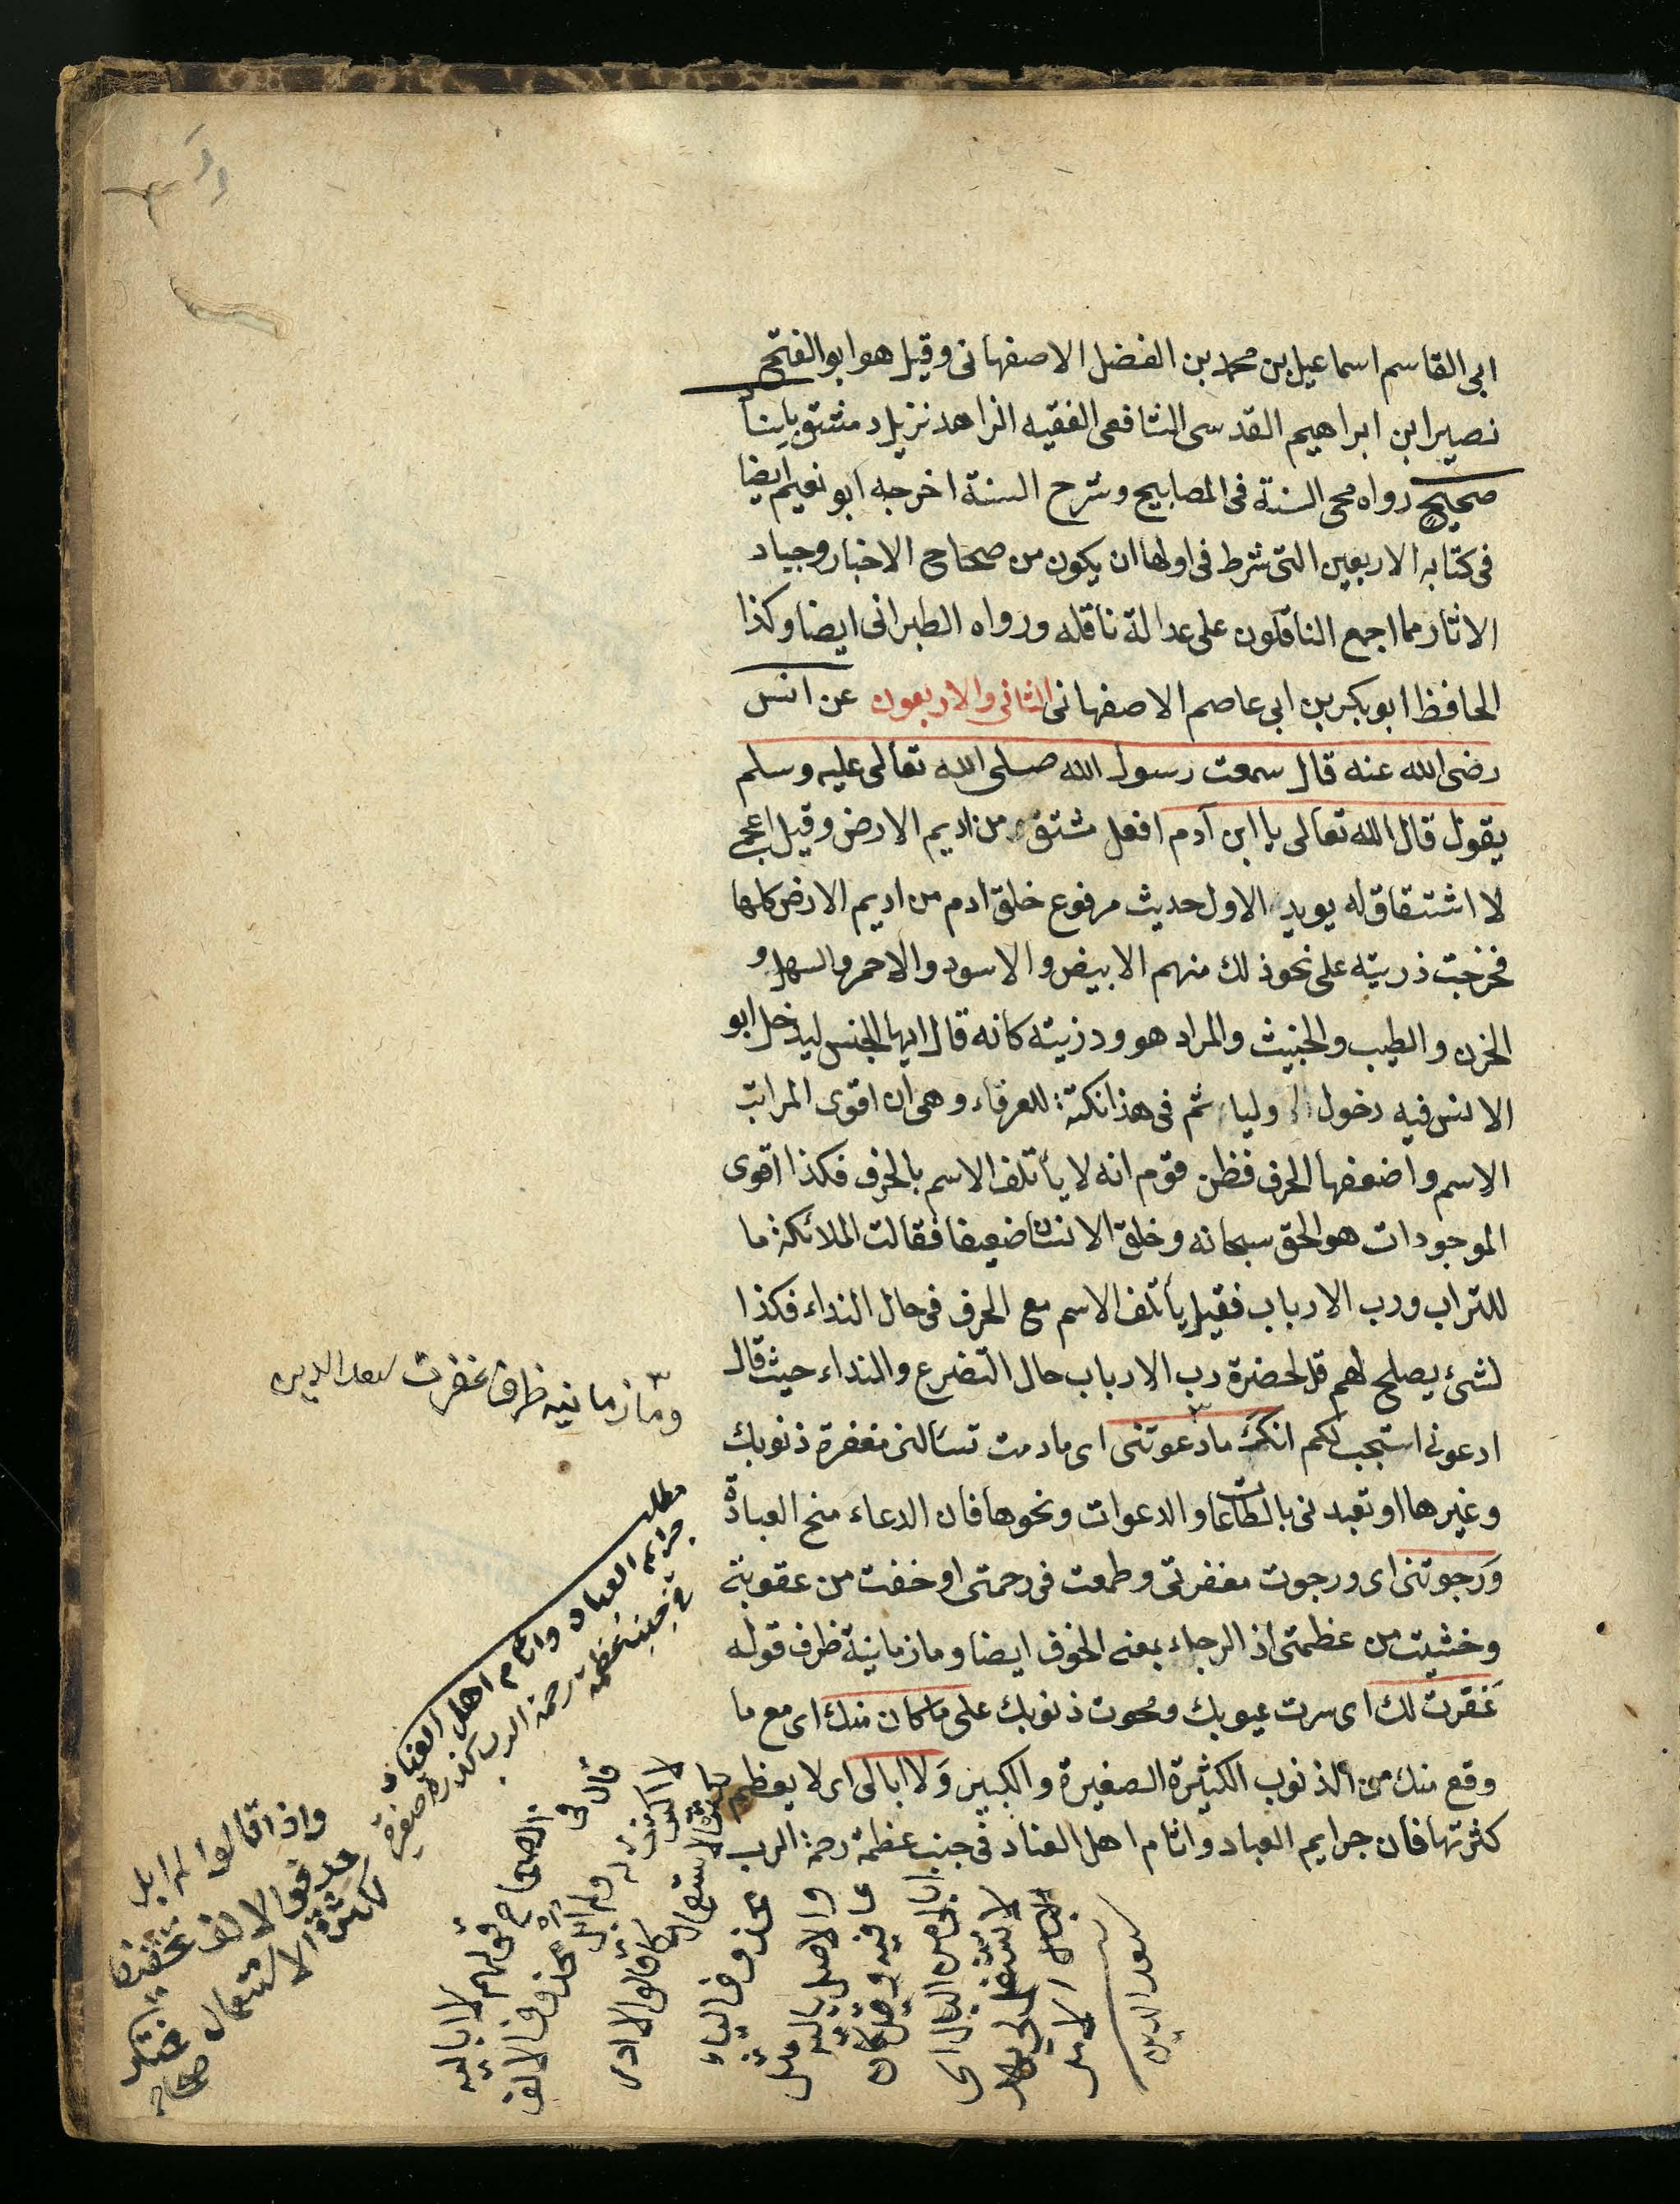 ابى القاسم اسماعيل بن محمد بن الفضل الاصفهانى وقيل هو ابو الفتح
نصير ابن ابراهيم القدسى الشافعى الفقيه الزاهد نزيل دمشق باسناد
صحيح رواه محى السنة فى المصابيح وشرح السنة اخرجه ابو نعيم ايضا
فى كتابه الاربعين التى شرط فى اولها ان يكون من صحاح الاخبار وجياد
الاثار مما اجمع الناقلون على عدالة ناقله ورواه الطبرانى ايضا وكذا
الحافظ ابو بكر بن ابى عاصم الاصفهانى الثانى والاربعون عن انس
رضى الله عنه قال سمعت رسول الله صلى الله تعالى عليه وسلم
يقول قال الله تعالى يا ابن آدم افعل مشتق من اديم الارض وقيل اعجمى
لا اشتقاق له يويد الاول حديث مرفوع خلق ادم من اديم الارض كلها
فخرجت ذريته على نحو ذلك منهم الابيض والاسود والاحمر والسهل و
الحزن والطيب والخبيث والمراد هو وذريته كانه قال ايها الجنس ليدخل ابو
الانس فيه دخول اوليا ثم فى هذا نكتة للعرفاء وهى ان اقوى المراتب
الاسم واضعفها الحرف فظن قوم انه لا يأتلف الاسم بالحرف فكذا اقوى
الموجودات هو الحق سبحانه وخلق الانسان ضعيفا فقالت الملائكة ما
للتراب ورب الارباب فقيل يأتلف الاسم مع الحرف فى حال النداء فكذا
لشئ يصلح لهم قد لحضرة رب الارباب حال التضرع والنداء حيث قال
ادعونى استجب لكم انك ما دعوتنى اى مادمت تسألنى مغفرة ذنوبك
وغيرها او تعبدنى بالطاعات والدعوات ونحوها فان الدعاء مخ العبادة
وَرجوتنى اى ورجوت مغفرتى وطمعت فى رحمتى او خفت من عقوبتى
وخشيت من عظمتى اذ الرجاء بمعنى الخوف ايضا وما زمانية ظرف قوله
غَفرت لك اى سرت عيوبك ومحوت ذنوبك على ما كان منك اى مع ما
وقع منك من الذنوب الكثيرة الصغيرة والكبير وَلا ابالى اى لا يعظم
كثرتها فان جرايم العباد واثام اهل العناد فى جنب عظمة رحمة الرب
وما زمانيه ظرف غفرت سعد الدين
مطلب
جرايم العباد واثام اهل العناد
فى جنب عظمة رحمة الرب كذرة صغيرة
قال فى
الصحاح قولهم لا اباليه
لا اكترث له ولم ابل بحذف الالف
لكثرة الاستعمال كما قالوا لا ادر
بحذف الياء
والاصل باليه مثل
عافيه وقيل كان
ابالى من البال اى
لا يشتغل بالى بهذا
الامر
سعد الدين
واذا قالوا لم ابل
حذفوا الالف تخفيفا
لكثرة الاستعمال